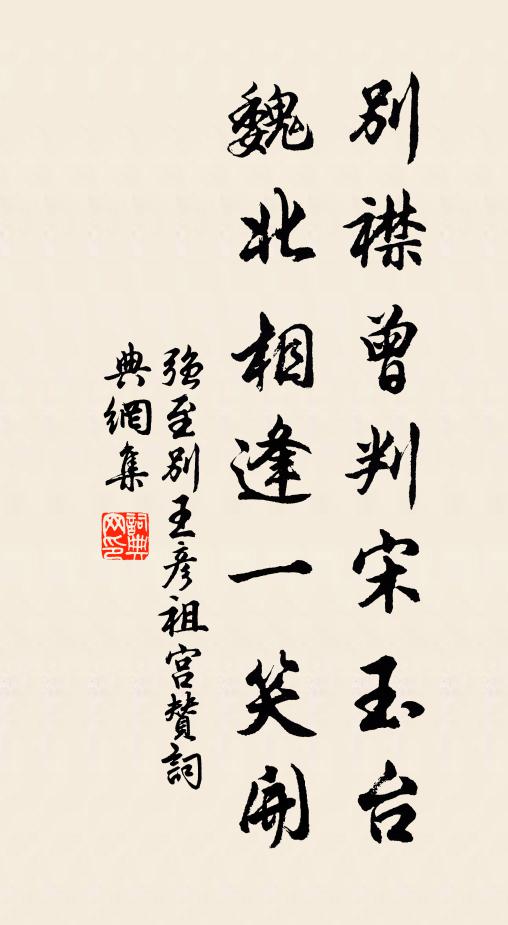 别襟曾判宋玉台
魏北相逢一笑開
强至别王彦祖宫赞詞
典網集
詞典网印